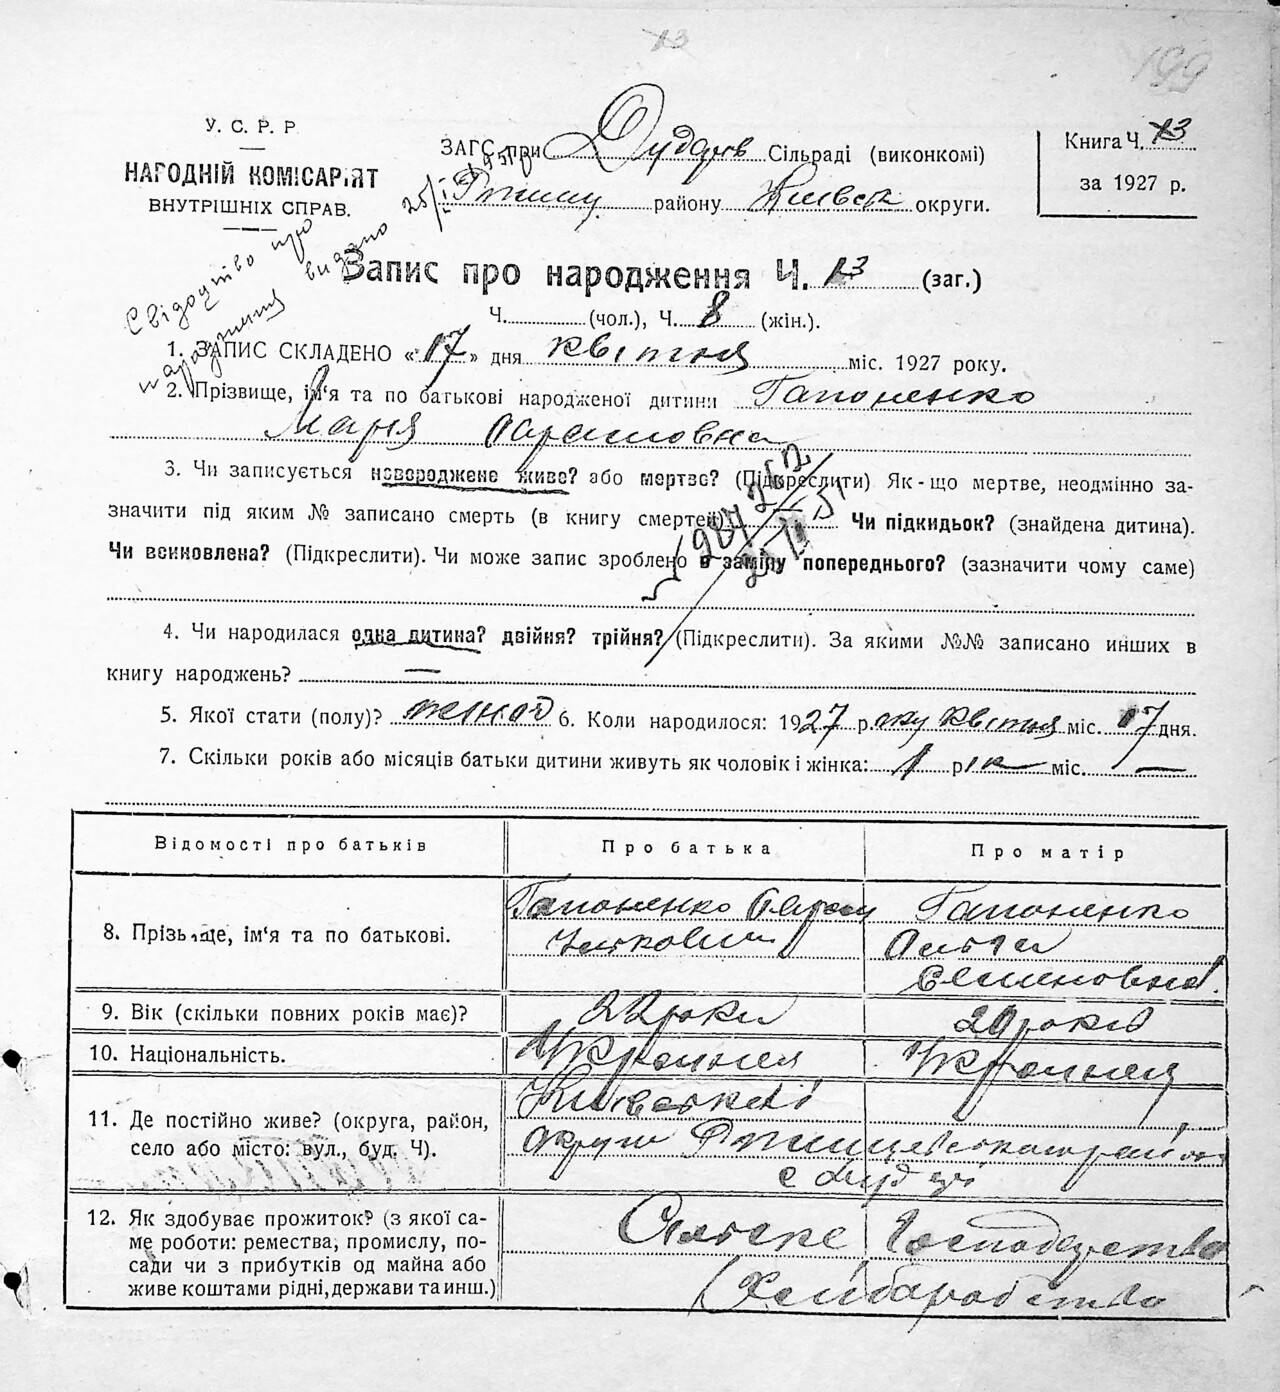 13
199
У. С. Р. Р
НАРОДНІЙ КОМІСАРІЯТ
ВНУТРІШНІХ СПРАВ.
ЗАГС при Дударів Сільраді (виконкомі)
Ржищ. району Київськ округи.
Книга Ч. 13
за 1927 р.
Свідоцтво про
народження видано 25/
Запис про народження Ч. 13 (заг.)
Ч. (чол.), Ч. 8 (жін.).
1. ЗАПИС СКЛАДЕНО «17» дня квітня міс. 1927 року.
2. Прізвище, ім'я та по батькові народженої дитини Гапоненко
Марія
3. Чи записується новороджене живе? або мертве? (Підкреслити) Як-що мертве, неодмінно за-
значити під яким № записано смерть (в книгу смертей) Чи підкидьок? (знайдена дитина).
Чи всиновлена? (Підкреслити). Чи може запис зроблено в заміну попереднього? (зазначити чому саме)
4. Чи народилася одна дитина? двійня? трійня? (Підкреслити). За якими №№ записано инших в
книгу народжень? —
5. Якої стати (полу)? жіночої 6. Коли народилося: 1927 р. квітня міс. 17 дня.
7. Скільки років або місяців батьки дитини живуть як чоловік і жінка: 1 рік міс. —
Відомості про батьків Про батька Про матір
8. Прізвище, ім'я та по батькові. Гапоненко Гапоненко
Семеновна
9. Вік (скільки повних років має)? 22 роки 20 років
10. Національність. Українец Українка
11. Де постійно живе? (округа, район,
село або місто: вул., буд. Ч).
Київської
округи Ржищевського району
с Дударі
12. Як здобуває прожиток? (з якої са-
ме роботи: ремества, промислу, по-
сади чи з прибутків од майна або
живе коштами рідні, держави та инш.)
Сільське Господарство
(Хліборобство